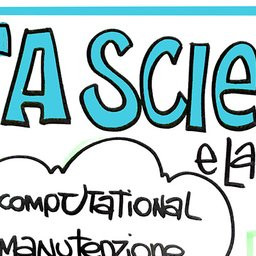 TA SCIE
e La
computational
manutenzione